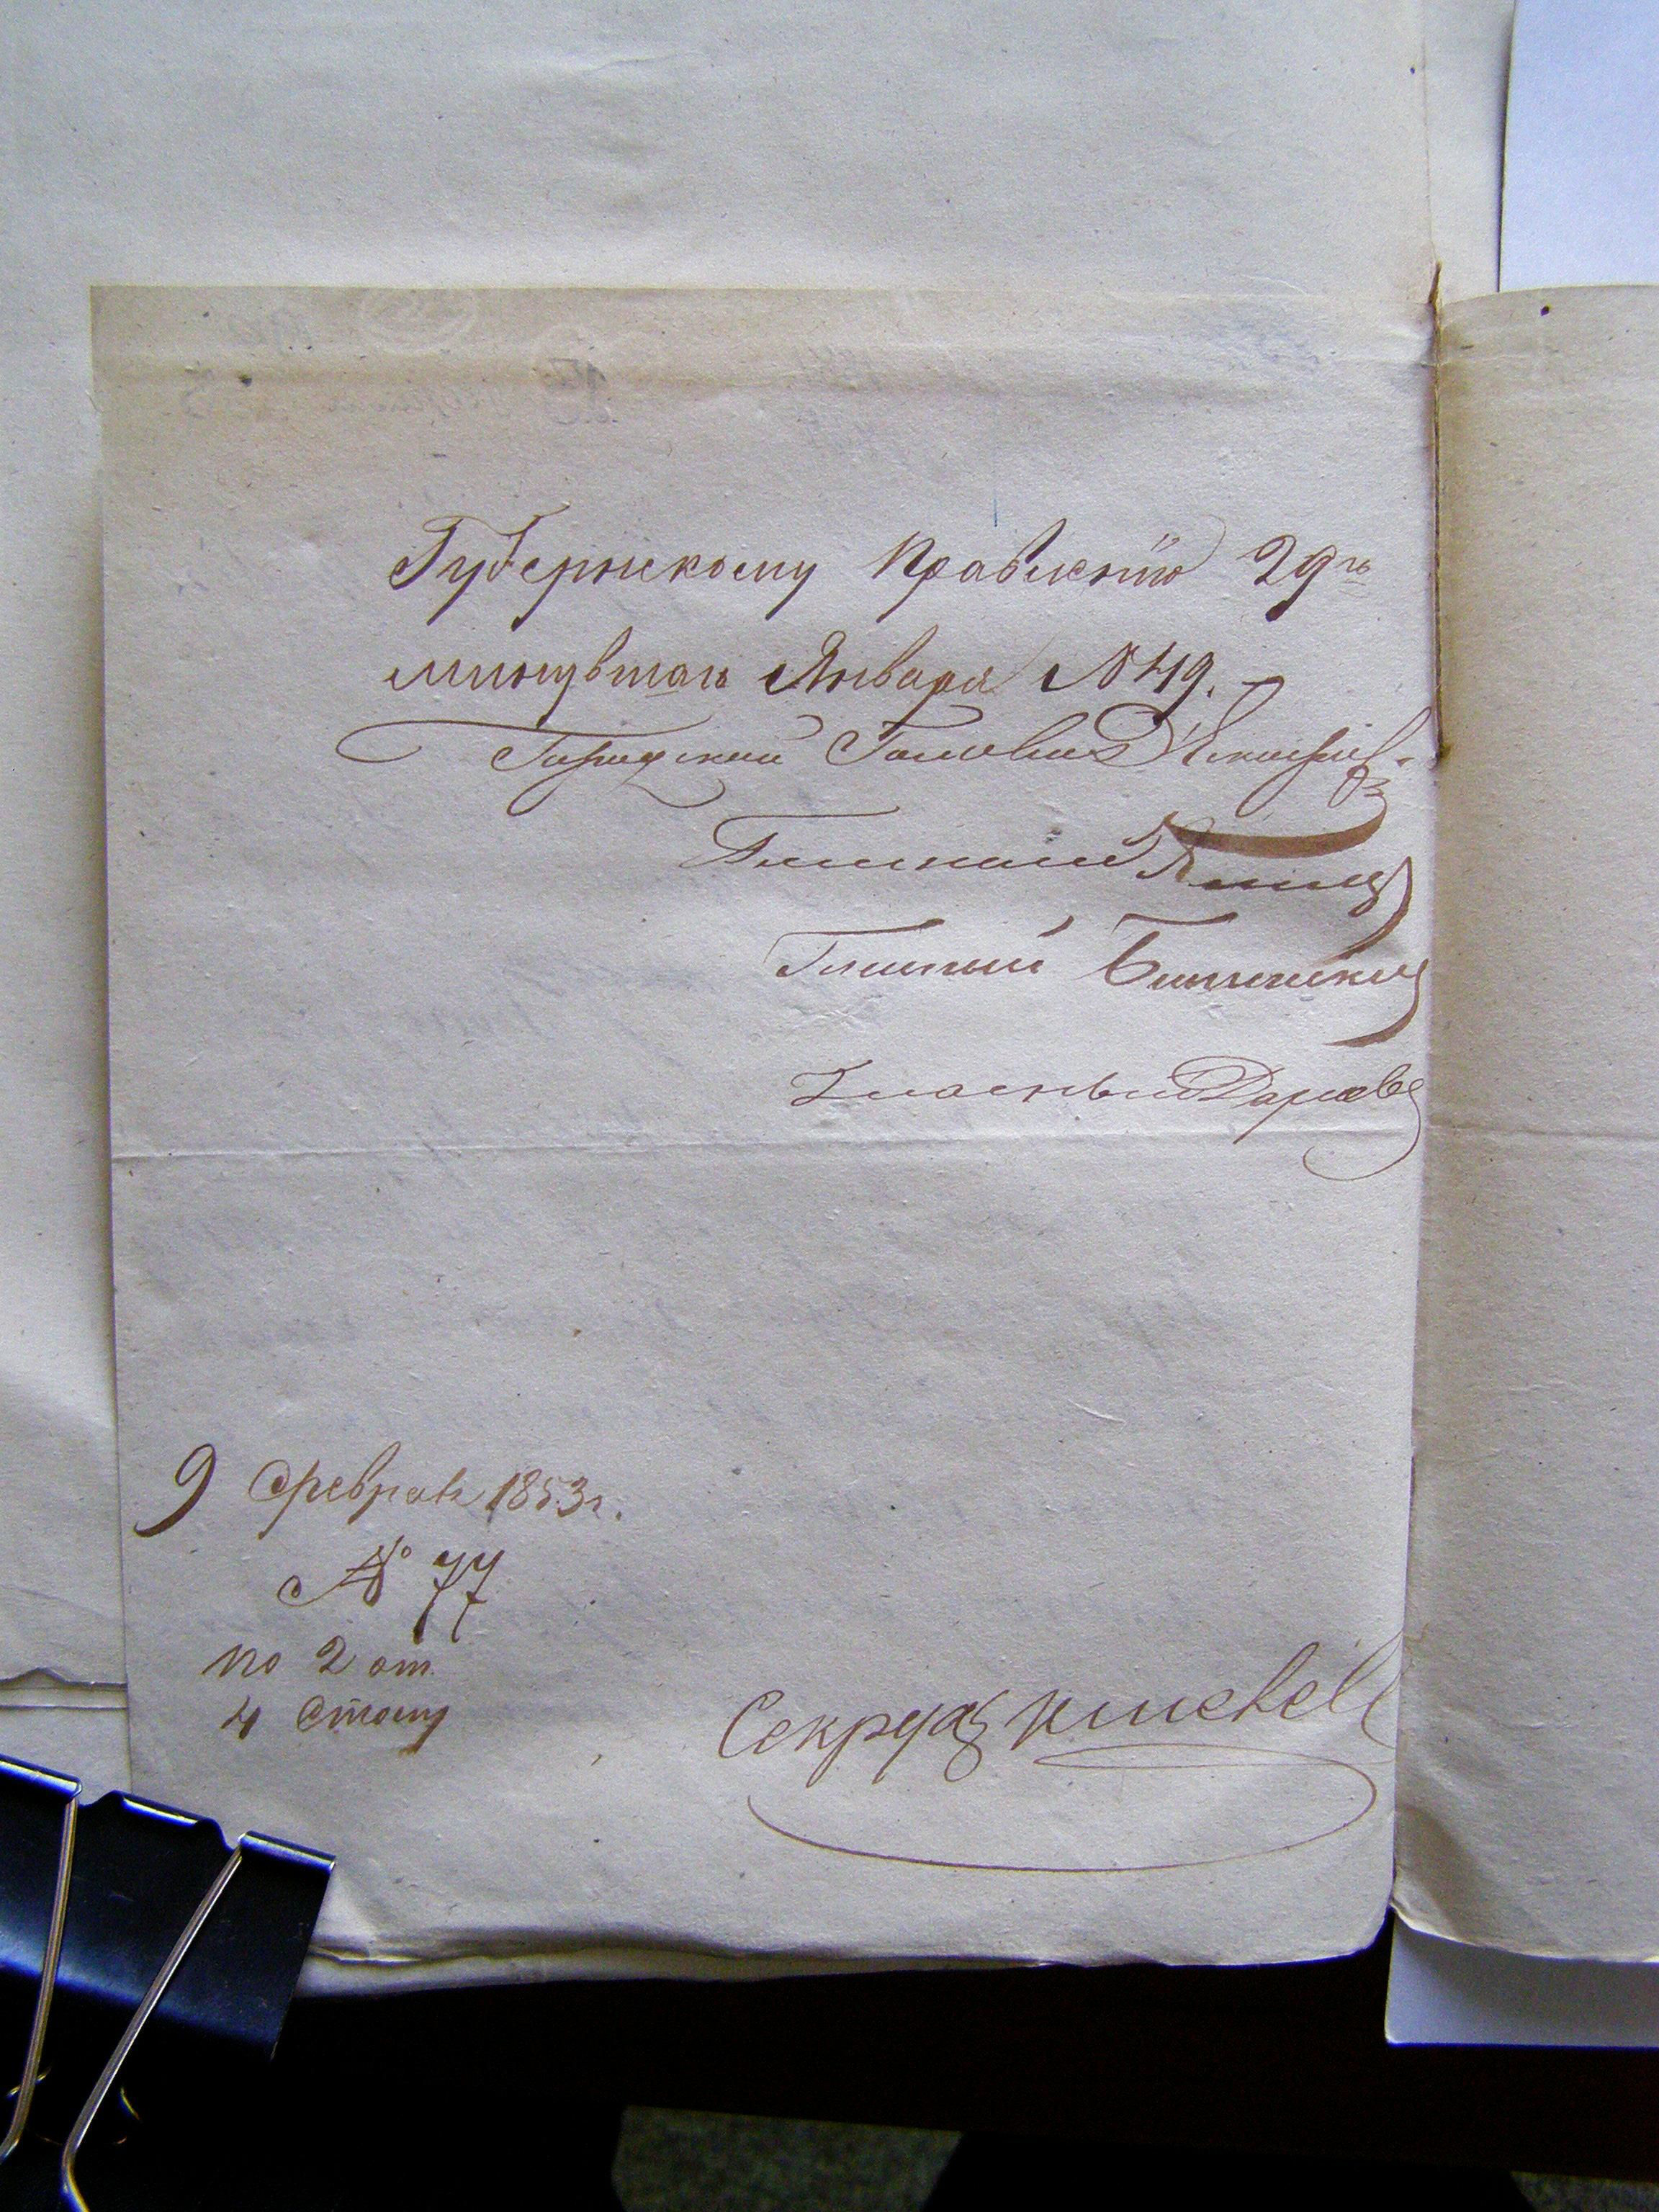 Губернскому Правленію 29го
минувшаго Января № 49.
Городской Голова
Гласный
Гласный
Гласный
9 Февраля 1853 г.
№ 77
по 2 от.
4 Столу
Секретарь